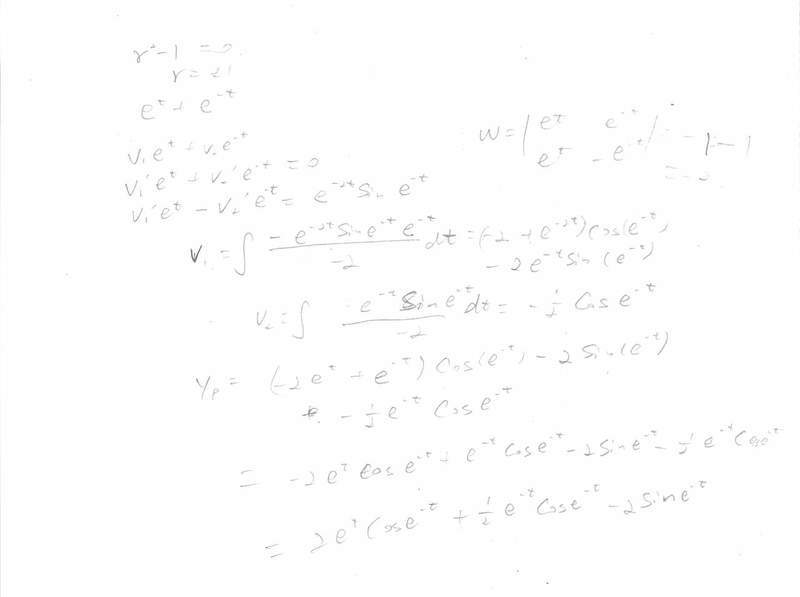 r² - 1 = 0
r = ±1
e^t + e^-t
v₁e^t + v₂e^-t
v₁'e^t + v₂'e^-t = 0
v₁'e^t - v₂'e^-t = e^-2t Sin e^-t
W = | e^t e^-t | = -1 - 1
e^t - e^-t
= -2
v₁ = ∫ -e^-2t Sin e^-t e^-t / -2 dt = (-2 + e^-2t) Cos(e^-t)
- 2e^-t Sin(e^-t)
v₂ = ∫ e^-t Sin e^-t / -2 dt = - ½ Cos e^-t
Yp = (-2e^t + e^-t) Cos(e^-t) - 2 Sin(e^-t)
- ½ e^-t Cos e^-t
= -2e^t Cos e^-t + e^-t Cos e^-t - 2 Sin e^-t - ½ e^-t Cos e^-t
= 2e^t Cos e^-t + ½ e^-t Cos e^-t - 2 Sin e^-t